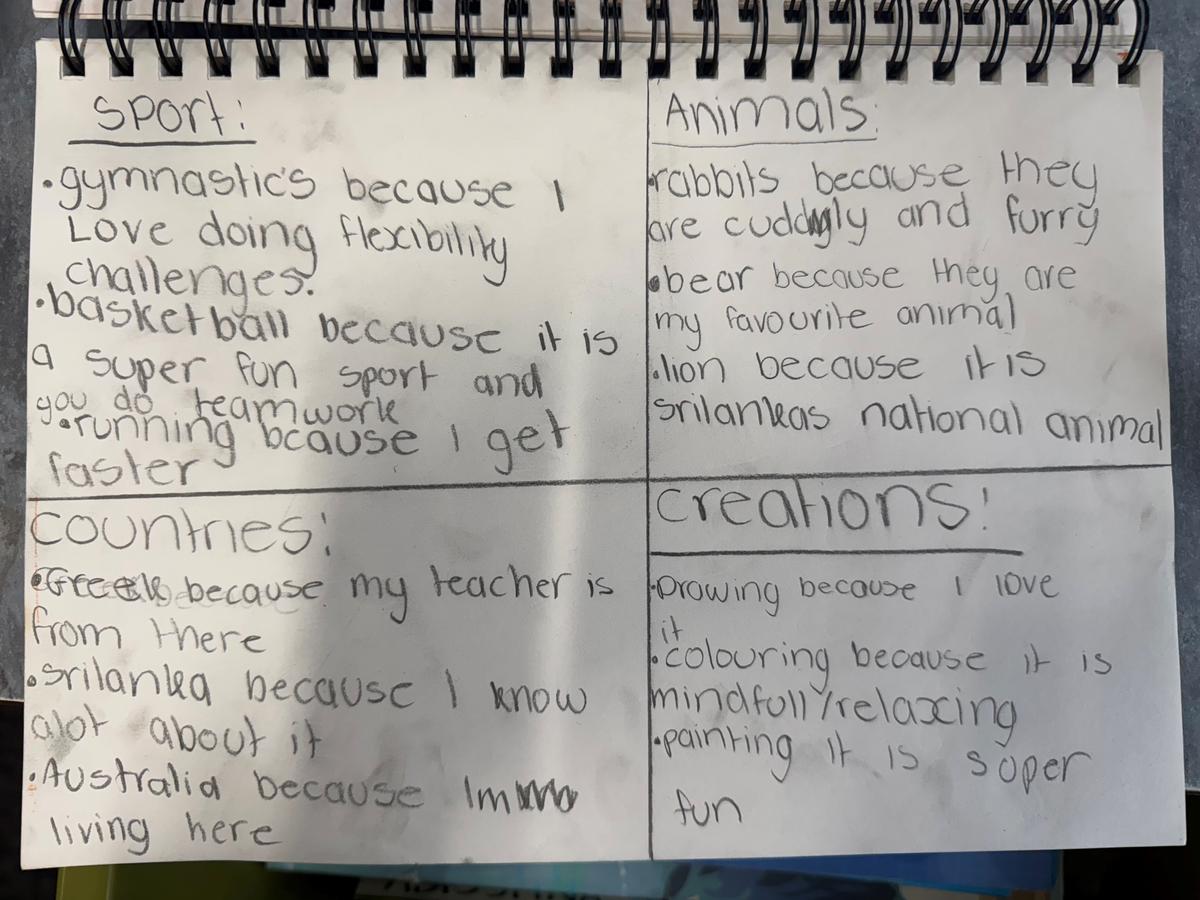 Sport:
•gymnastics because I
Love doing flexibility
challenges.
•basketball because it is
a super fun sport and
you do teamwork
•running bcause I get
faster
Animals:
•rabbits because they
are cuddly and furry
•bear because they are
my favourite animal
•lion because it is
srilankas national animal
Countries:
•Greek because my teacher is
from there
•srilanka because I know
alot about it
•Australia because Im
living here
Creations:
•Drowing because I love
it
•colouring because it is
mindfull/relaxing
•painting it is super
fun